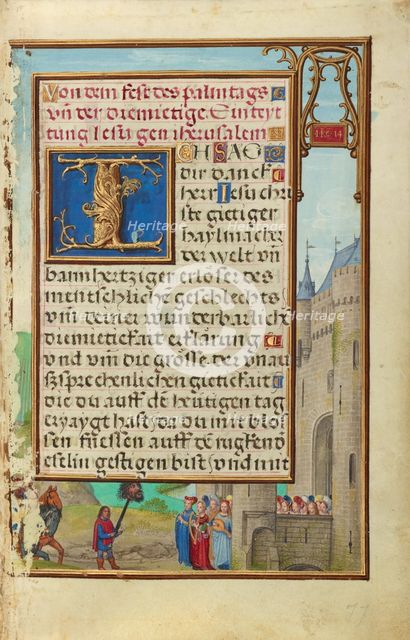 Von dem fest des palmtags
vn̄ der diemietige. Einteyt
tung Jesu gen iherusalem
ICH SAG
dir danck
herr Jesu chri
ste gietiger
haylmacher
der welt vn̄
barmhertziger erlöser des
mentschliche geschlechts
vm̄ deiner wunderbarliche
diemietikait erklärung
vnd vm̄ die grösse der vnau
ßsprechenlichen gietikait
die du auff dē heütigen tag
erzaygt hast da du mit blos
sen fuessen auff dē rugken d
eselin gestigen bist / vnd mit
77
Heritage
Heritage
Heritage
Heritage